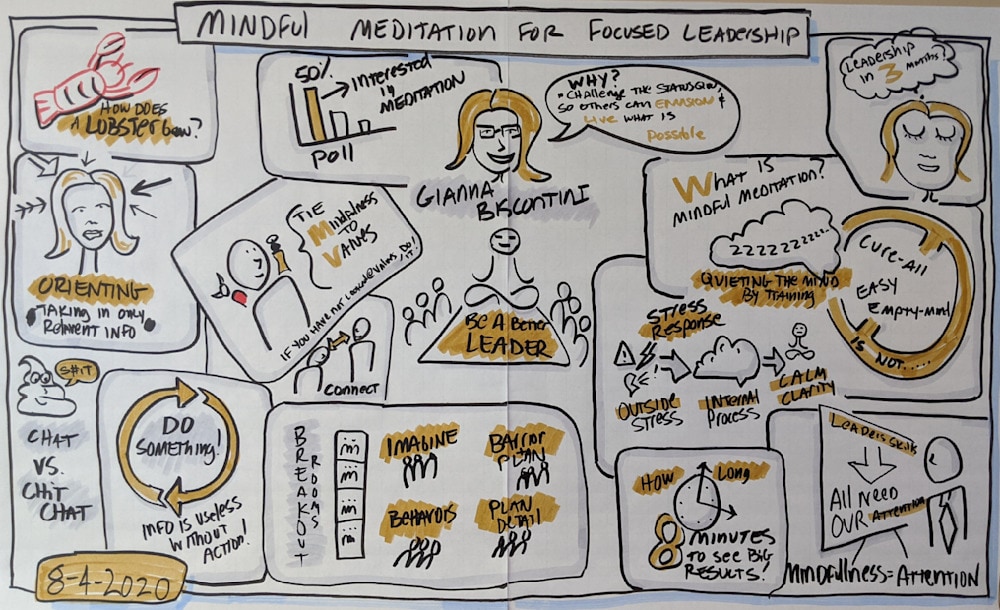 MINDFUL MEDITATION FOR FOCUSED LEADERSHIP
HOW DOES
A LOBSTER Grow?
50%
INTERESTED
IN
MEDITATION
Poll
WHY?
CHALLENGE THE STATUS QUO,
SO OTHERS CAN ENVISION &
LIVE WHAT IS
Possible
LEADERSHIP
IN 3
MONTHS?
GIANNA
BISCONTINI
ORIENTING
TAKING IN ONLY
Relevant INFO
TIE
Mindfulness
TO
VALUES
IF YOU HAVE NOT LOOKED @ VALUES, DO
IT!
CONNECT
BE A Better
LEADER
WHAT IS
MINDFUL MEDITATION?
ZZZZZZZZZZ...
QUIETING THE MIND
BY TRAINING
CURE-All
EASY
EMPTY-mind
IS NOT.....
STRESS
Response
OUTSIDE
STRESS
INTERNAL
PROCESS
CALM
CLARITY
S#!T
CHAT
VS.
CHIT
CHAT
DO
SOMETHING!
MFD IS USELESS
WITHOUT
ACTION!
BREAKOUT
ROOMS
IMAGINE
BEHAVIORS
PLAN
DETAIL
HOW Long
8
MINUTES
TO SEE BIG
RESULTS!
Leaders Skills
All NEED
OUR ATTENTION
MINDFULLNESS = ATTENTION
8-4-2020